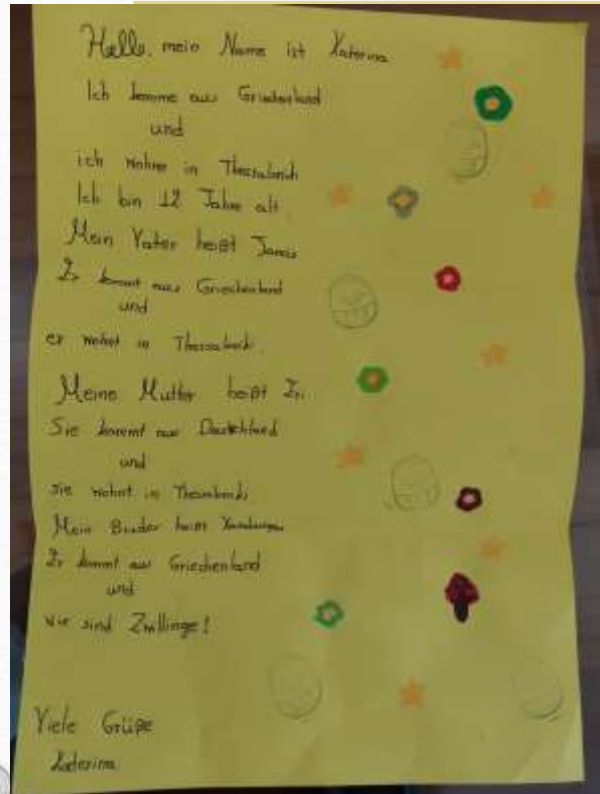 Hallo, mein Name ist Katerina
Ich komme aus Griechenland
und
ich wohne in Thessaloniki
Ich bin 12 Jahre alt.
Mein Vater heißt
Er kommt aus Griechenland
und
er wohnt in Thessaloniki.
Meine Mutter heißt
Sie kommt aus
und
sie wohnt in Thessaloniki.
Mein Bruder heißt
Er kommt aus Griechenland
und
wir sind Zwillinge!
Viele Grüße
Katerina